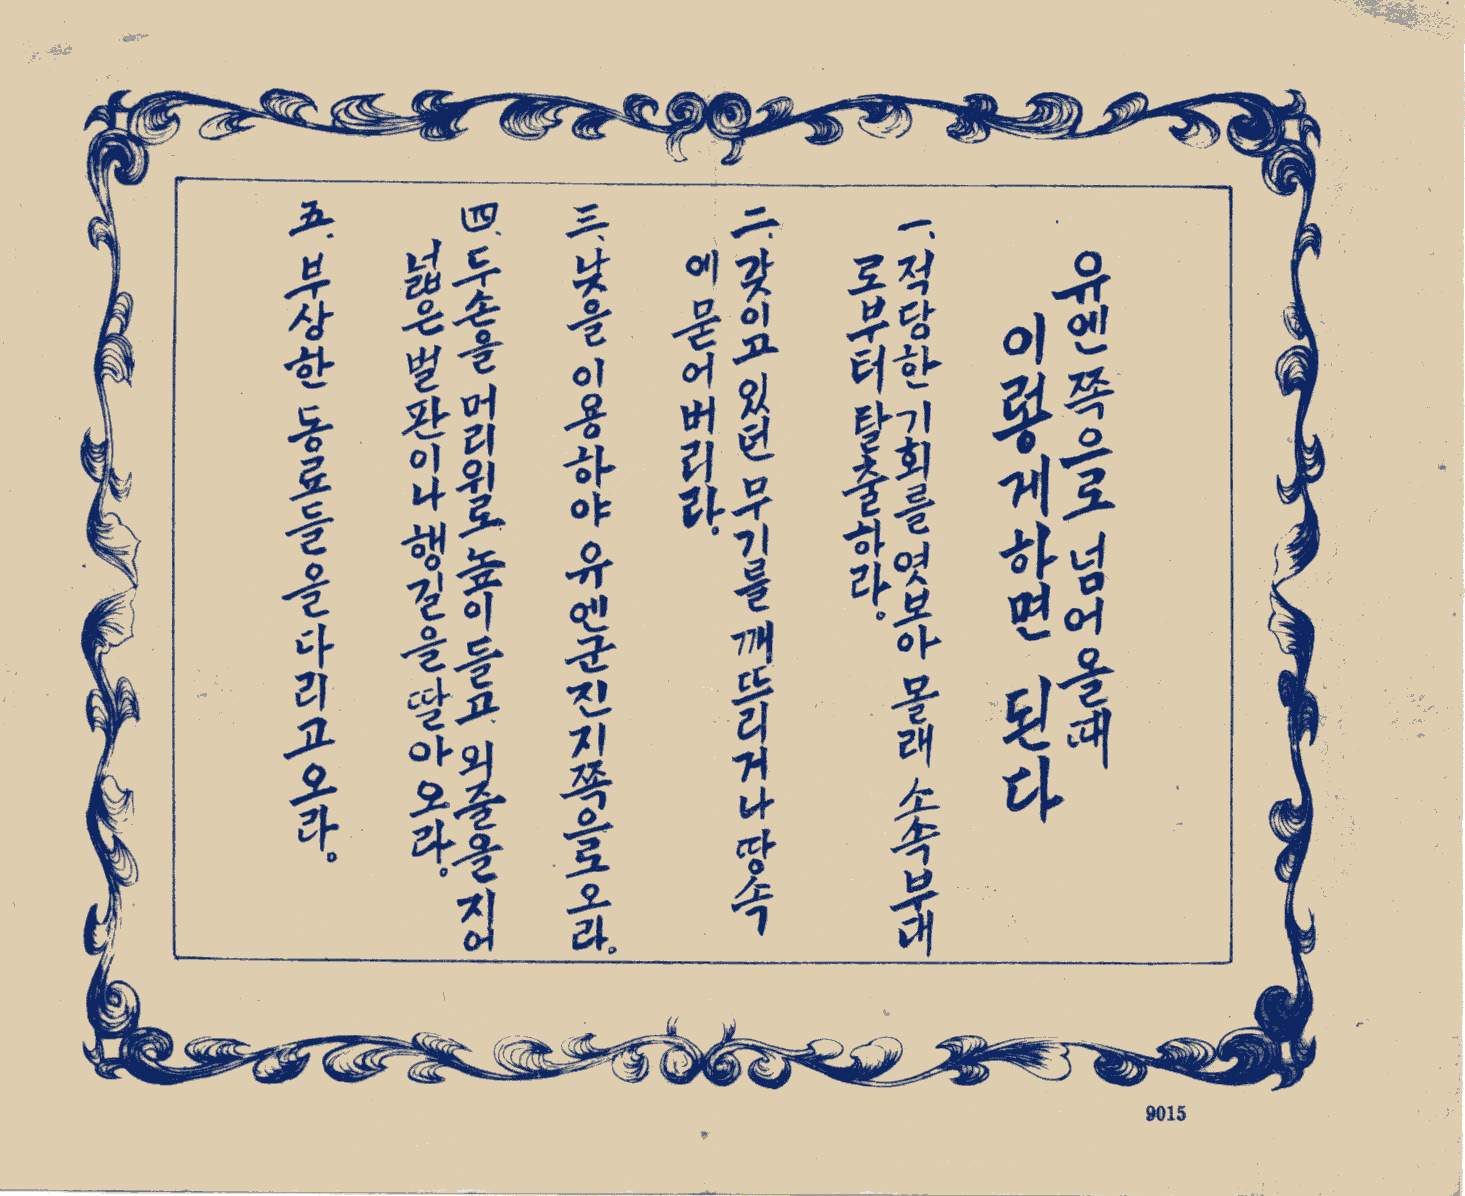 유엔 쪽으로 넘어 올때
이렇게 하면 된다
一. 적당한 기회를 엿보아 몰래 소속부대
로부터 탈출하라。
二. 갖이고 있던 무기를 깨뜨리거나 땅속
에 묻어버리라。
三. 낮을 이용하야 유엔군진지쪽을로 오라。
四. 두손을 머리위로 높이 들고 외줄을 지어
넓은 벌판이나 행길을 딸아 오라。
五. 부상한 동료들을 다리고 오라。
9015